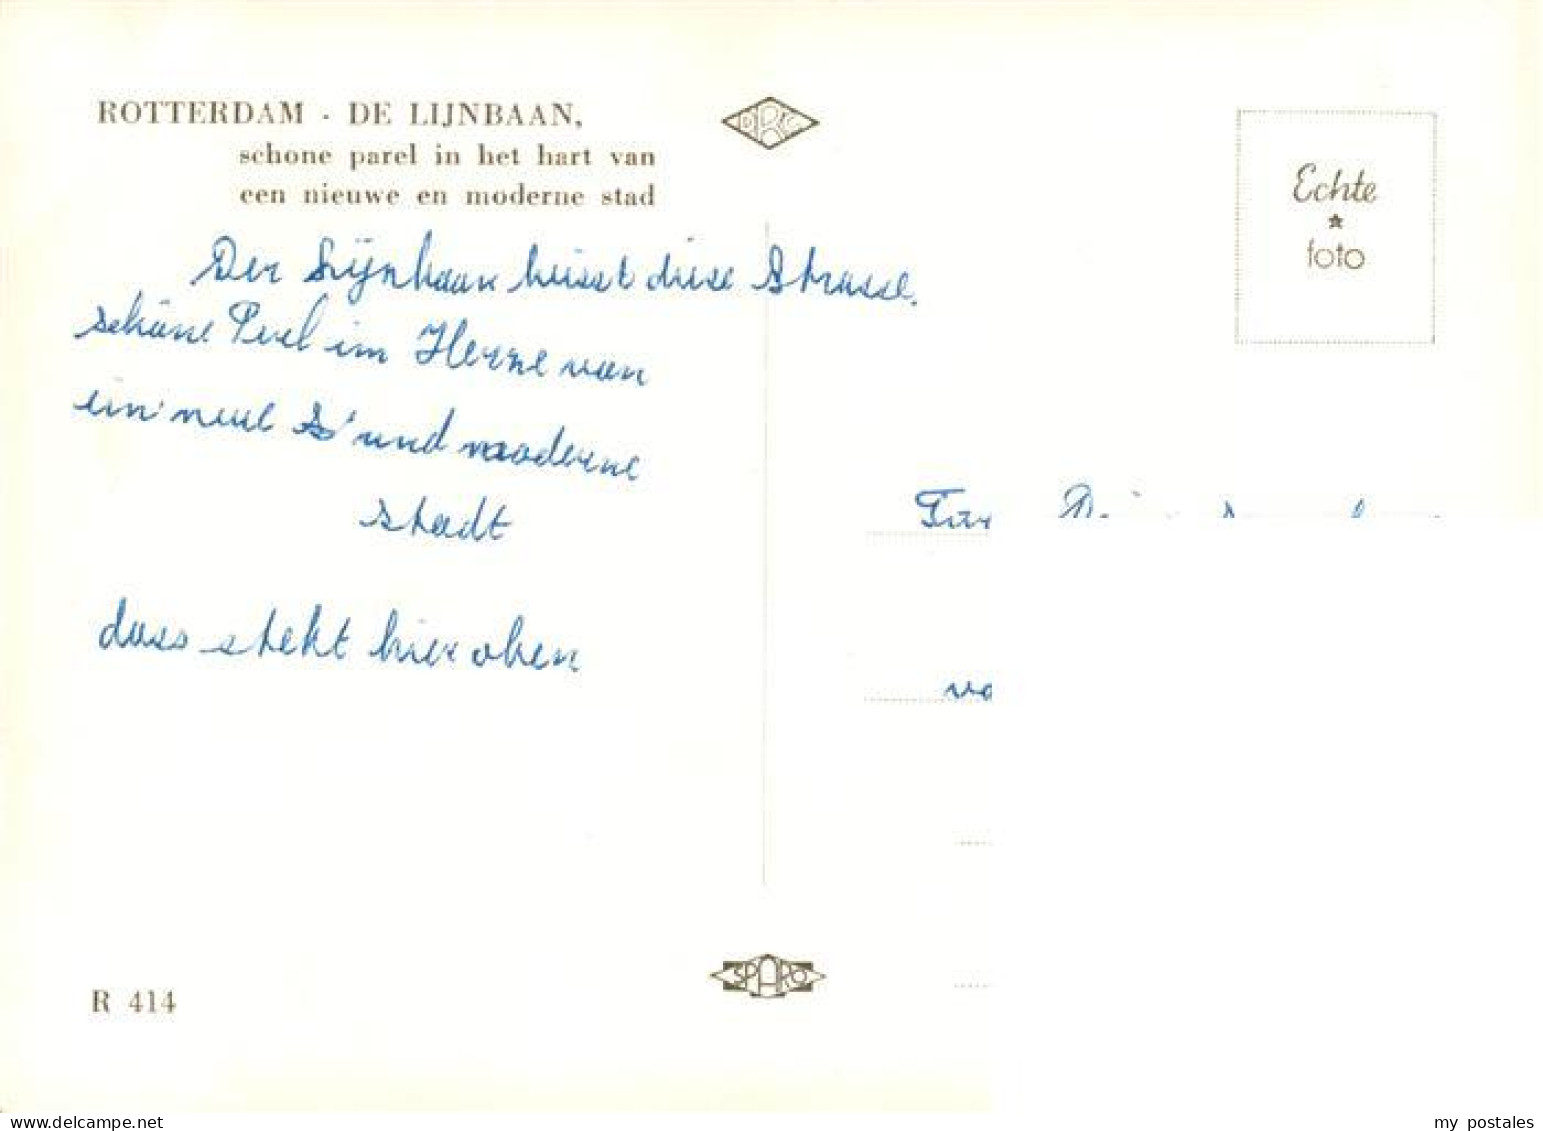 ROTTERDAM - DE LIJNBAAN,
schone parel in het hart van
een nieuwe en moderne stad
Echte
foto
Der Lijnbaan heisst diese Strasse.
schöne Perl im Herze van
ein neue und moderne
stadt
dass stekt hier oben
SPARO
R 414
my postales